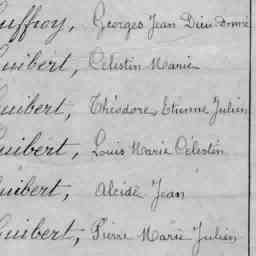 uffroy, Georges Jean Dieu-donné
Guibert, Célestin Marie
Guibert, Théodore Etienne Julien
Guibert, Louis Marie Célestin
Guibert, Alcide Jean
Guibert, Pierre Marie Julien